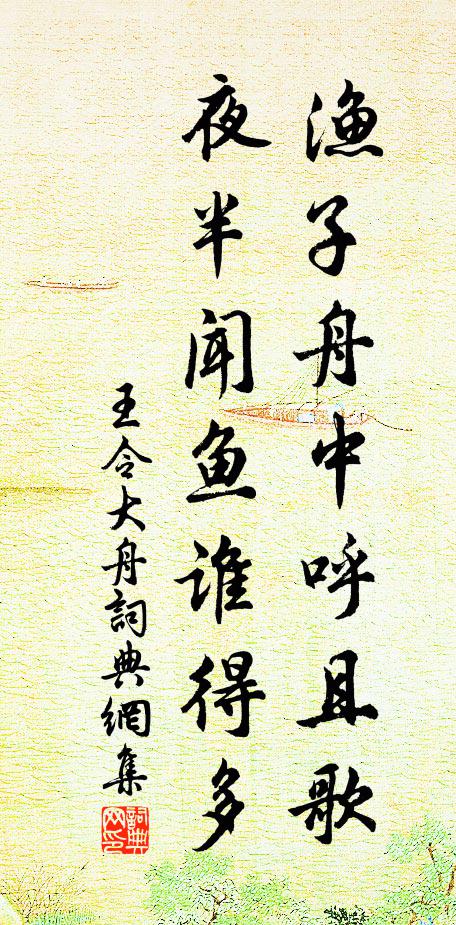 渔子舟中呼且歌
夜半闻鱼谁得多
王令大舟詞典網集
詞典網印